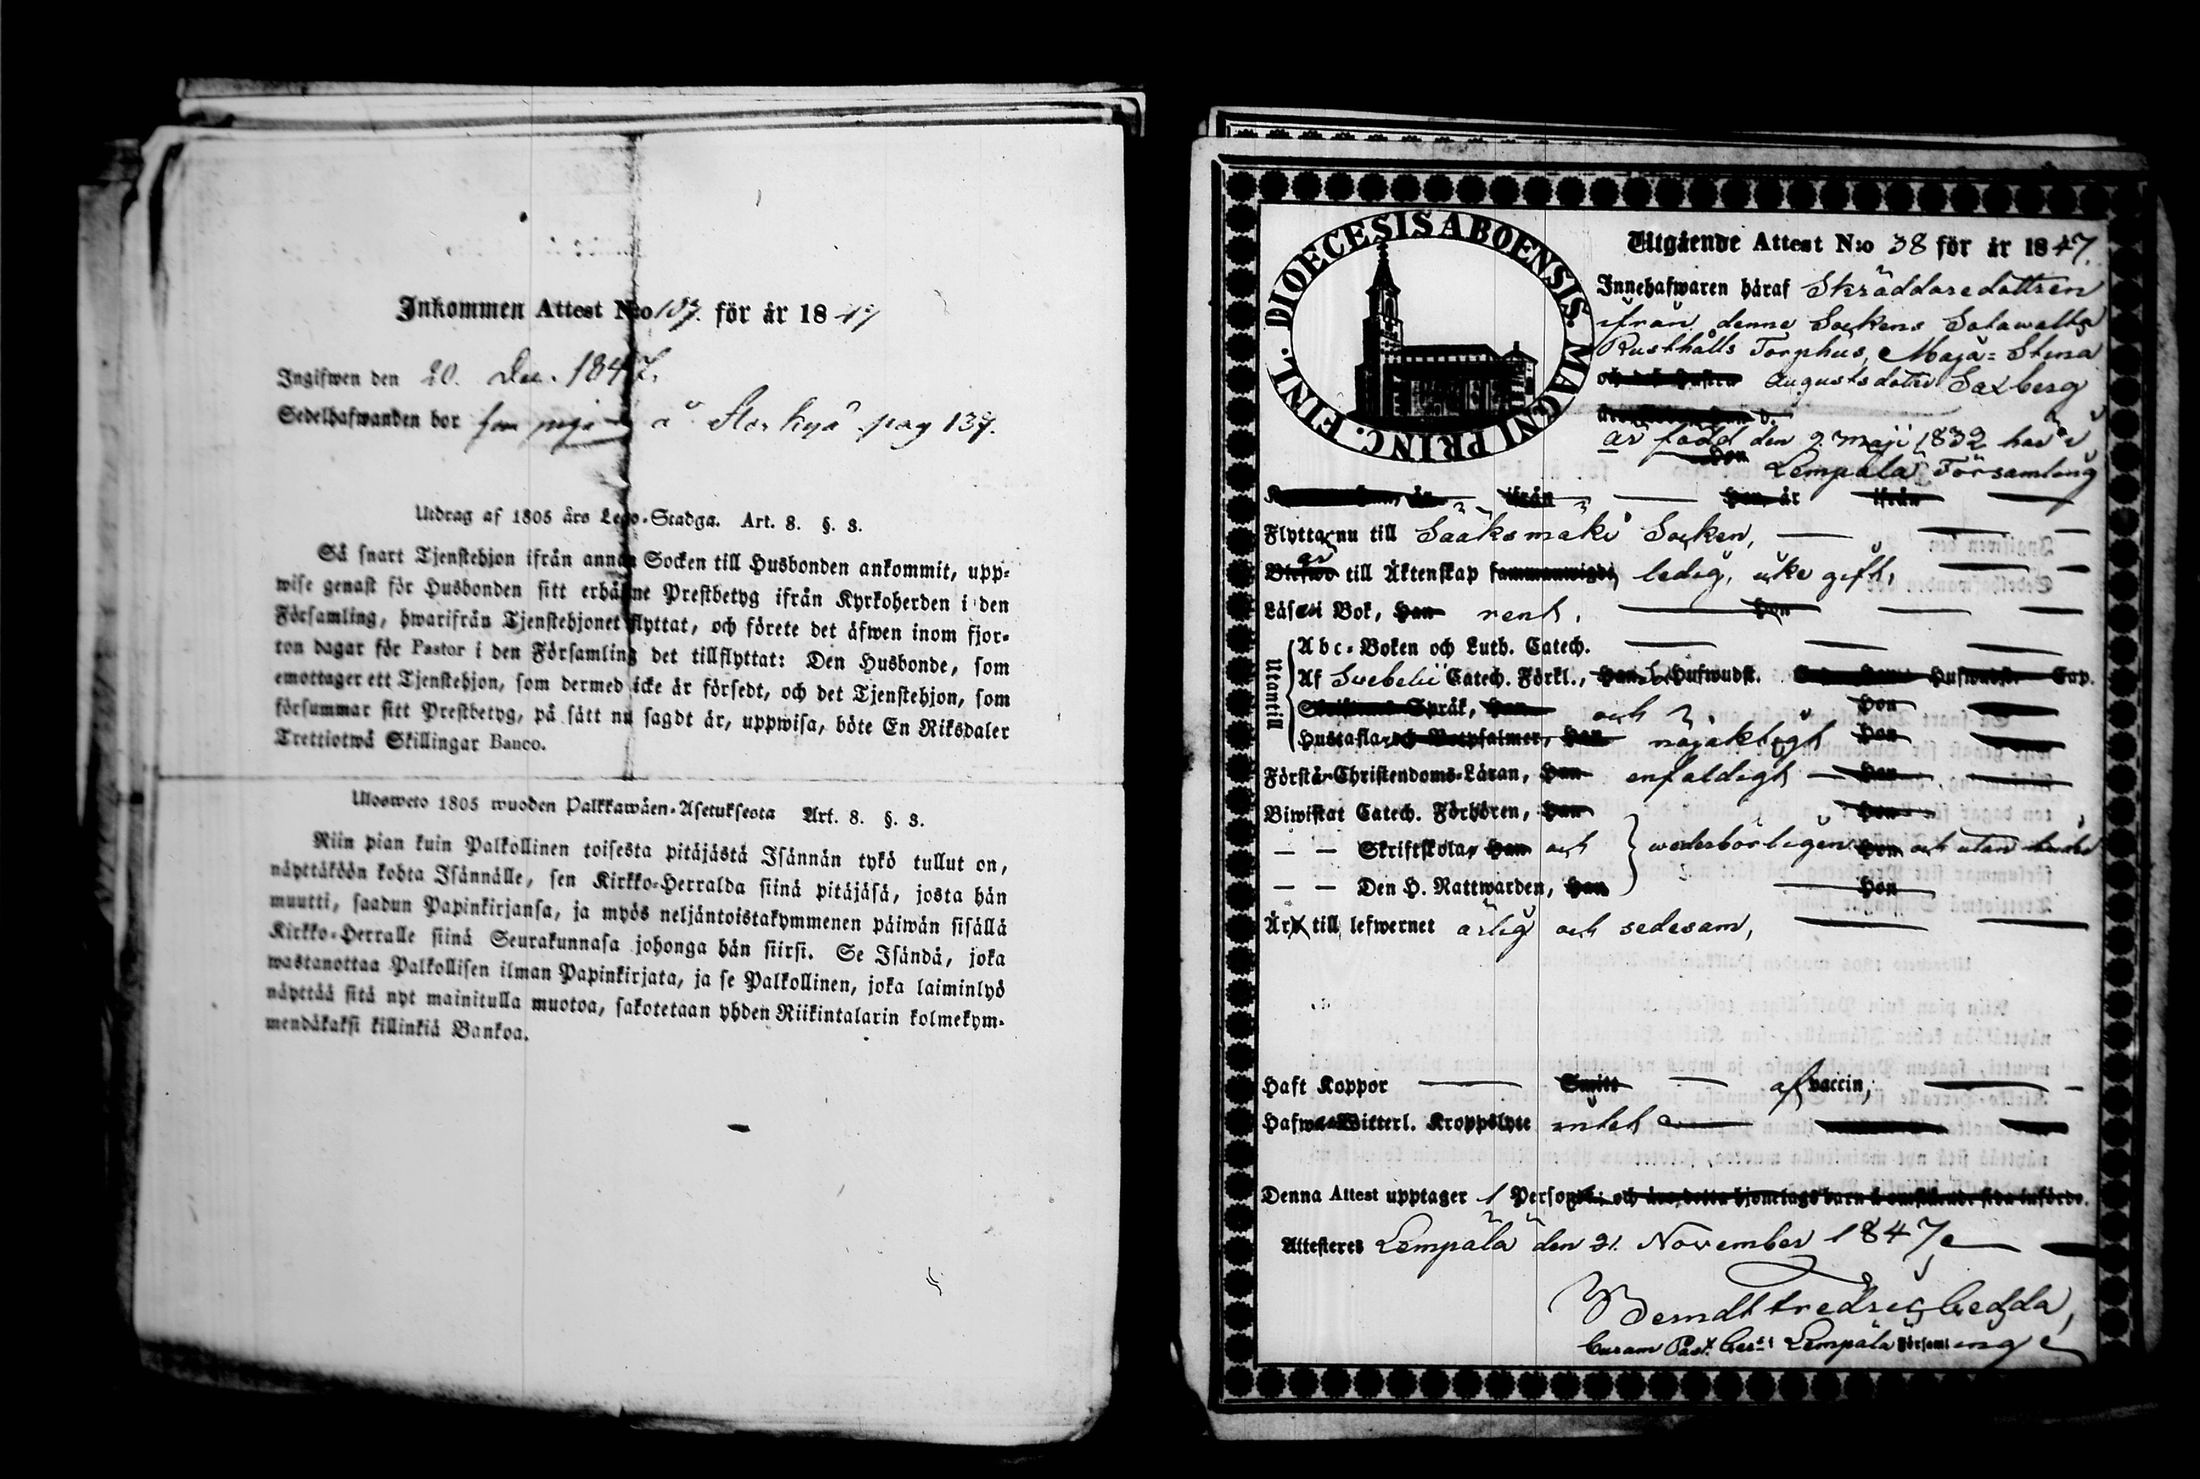 Inkommen Attest N:o 137. för år 1847
Ingifwen den 20. Dec. 1847.
Sedelhafwanden bor som piga å Storkyä pag 137.
Utdrag af 1805 års Lego-Stadga. Art. 8. §. 3.
Så snart Tjenstehjon ifrån annan Socken till Husbonden ankommit, upp-
wise genast för Husbonden sitt erhållne Prestbetyg ifrån Kyrkoherden i den
Församling, hwarifrån Tjenstehjonet flyttat, och förete det äfwen inom fjor-
ton dagar för Pastor i den Församling det tillflyttat: Den Husbonde, som
emottager ett Tjenstehjon, som dermed icke är försedt, och det Tjenstehjon, som
försummar sitt Prestbetyg, på sätt nu sagdt är, uppwisa, böte En Riksdaler
Trettiotwå Skillingar Banco.
Ulosweto 1805 wuoden Palkkawäen-Asetuksesta Art. 8. §. 3.
Niin pian kuin Palkollinen toisesta pitäjästä Isännän tykö tullut on,
näyttäköön kohta Isännälle, sen Kirkko-Herralda siinä pitäjäsä, josta hän
muutti, saadun Papinkirjansa, ja myös neljäntoistakymmenen päiwän sisällä
Kirkko-Herralle siinä Seurakunnasa johonga hän siirsi. Se Isändä, joka
wastanottaa Palkollisen ilman Papinkirjata, ja se Palkollinen, joka laiminlyö
näyttää sitä nyt mainitulla muotoa, sakotetaan yhden Riikintalarin kolmekym-
mendäkaksi killinkiä Bankoa.
DIOECESIS ABOENSIS. MAGNI PRINC. FINL.
Utgående Attest N:o 38 för år 1847.
Innehafwaren häraf Skräddaredottren
ifrån denne Sockens Solawalla
Rusthålls Torphus, Maja-Stina
och des Hustru Augustsdotter Saxberg
är född den 9 Maji 1832 här i
Hon Lempälä Församling
är ifrån Hon är ifrån
Flytta nu till Sääksmäki Socken,
är till Äktenskap sammanwigde, ledig, icke gift,
Läser i Bok, Han rent, Hon
Utantill
Abc-Boken och Luth. Catech.
Af Svebelii Catech. Förkl., Han Hufwudst. Hufwudst. Cap.
Språk, Han Hon
Hustafla och Botpsalmer, Han och nöjaktigt Hon
Förstår Christendoms-Läran, Han enfaldigt Hon
Biwistat Catech. Förhören, Han Hon
— — Skriftskola, Han och wederbörligen Hon och utan hinder
— — Den H. Nattwarden, Han Hon
Är till lefwernet ärlig och sedesam,
Haft Koppor Smitt af vaccin,
Hafwa Witterl. Kroppslyte intet
Denna Attest upptager 1 Person; och äro detta hjonelags barn å omstående sida införde.
Attesteres Lempälä den 21. November 1847,
Berndt Fredric Gedda,
Curam Past. Ger:s i Lempälä Församling